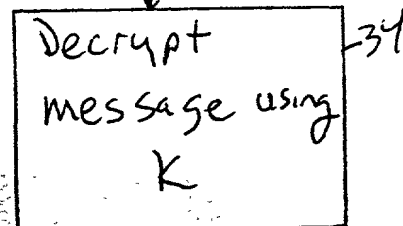 Decrypt
message using
K
34